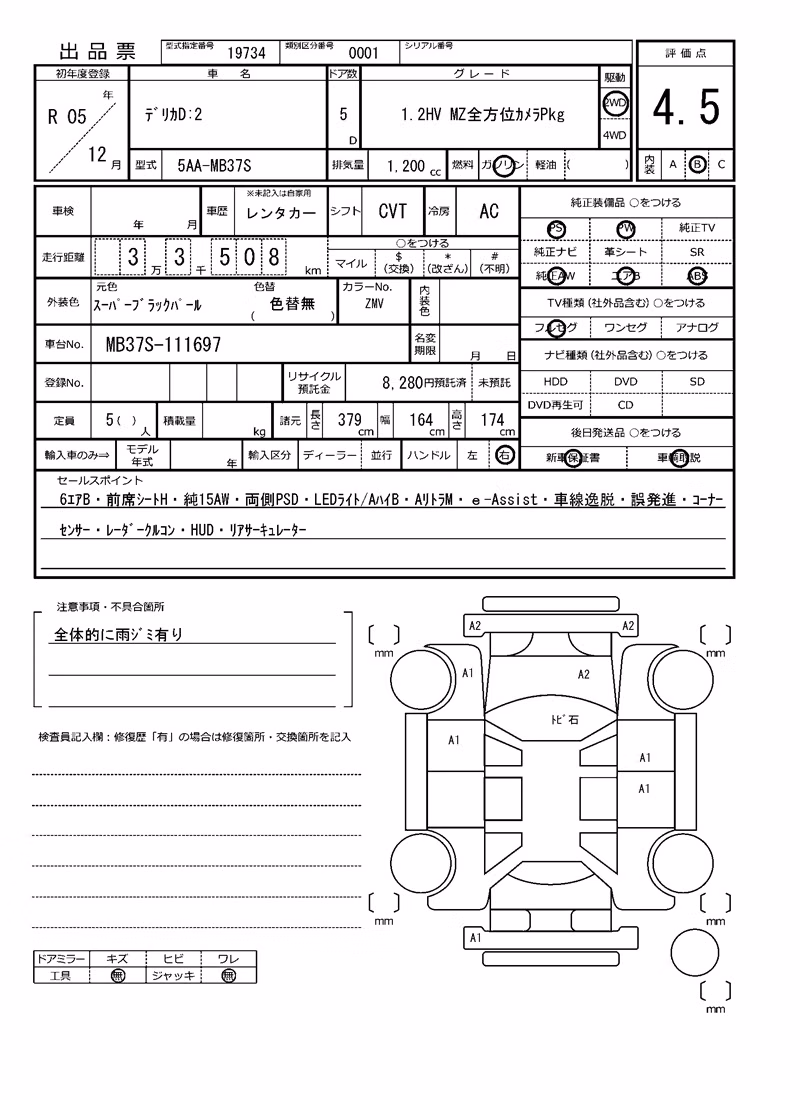 出品票 型式指定番号 19734 類別区分番号 0001 シリアル番号
評価点
4.5
内装 A B C
初年度登録 車名 ドア数 グレード 駆動
R 05 年 12 月 デリカD:2 5 D 1.2HV MZ全方位カメラPkg 2WD
4WD
型式 5AA-MB37S 排気量 1,200 cc 燃料 ガソリン 軽油 ( )
車検 年 月 車歴 ※未記入は自家用 レンタカー シフト CVT 冷房 AC
走行距離 3 万 3 千 5 0 8 km ○をつける
マイル $ (交換) * (改ざん) # (不明)
外装色 元色 スーパーブラックパール 色替 ( 色替無 ) カラーNo. ZMV 内装色
車台No. MB37S-111697 名変期限 月 日
登録No. リサイクル預託金 8,280円預託済 未預託
定員 5 ( ) 人 積載量 kg 諸元 長さ 379 cm 幅 164 cm 高さ 174 cm
輸入車のみ⇒ モデル年式 年 輸入区分 ディーラー 並行 ハンドル 左 右
純正装備品 ○をつける
PS PW 純正TV
純正ナビ 革シート SR
純正AW エアB ABS
TV種類(社外品含む) ○をつける
フルセグ ワンセグ アナログ
ナビ種類(社外品含む) ○をつける
HDD DVD SD
DVD再生可 CD
後日発送品 ○をつける
新車保証書 車輌取説
セールスポイント
6エアB・前席シートH・純15AW・両側PSD・LEDライト/AハイB・AリトラM・e-Assist・車線逸脱・誤発進・コーナー
センサー・レーダークルコン・HUD・リアサーキュレーター
注意事項・不具合箇所
全体的に雨ジミ有り
検査員記入欄:修復歴「有」の場合は修復箇所・交換箇所を記入
ドアミラー キズ ヒビ ワレ
工具 無 ジャッキ 無
A2 A2
mm mm
A1 A2
トビ石
A1
A1
A1
mm mm
A1
mm